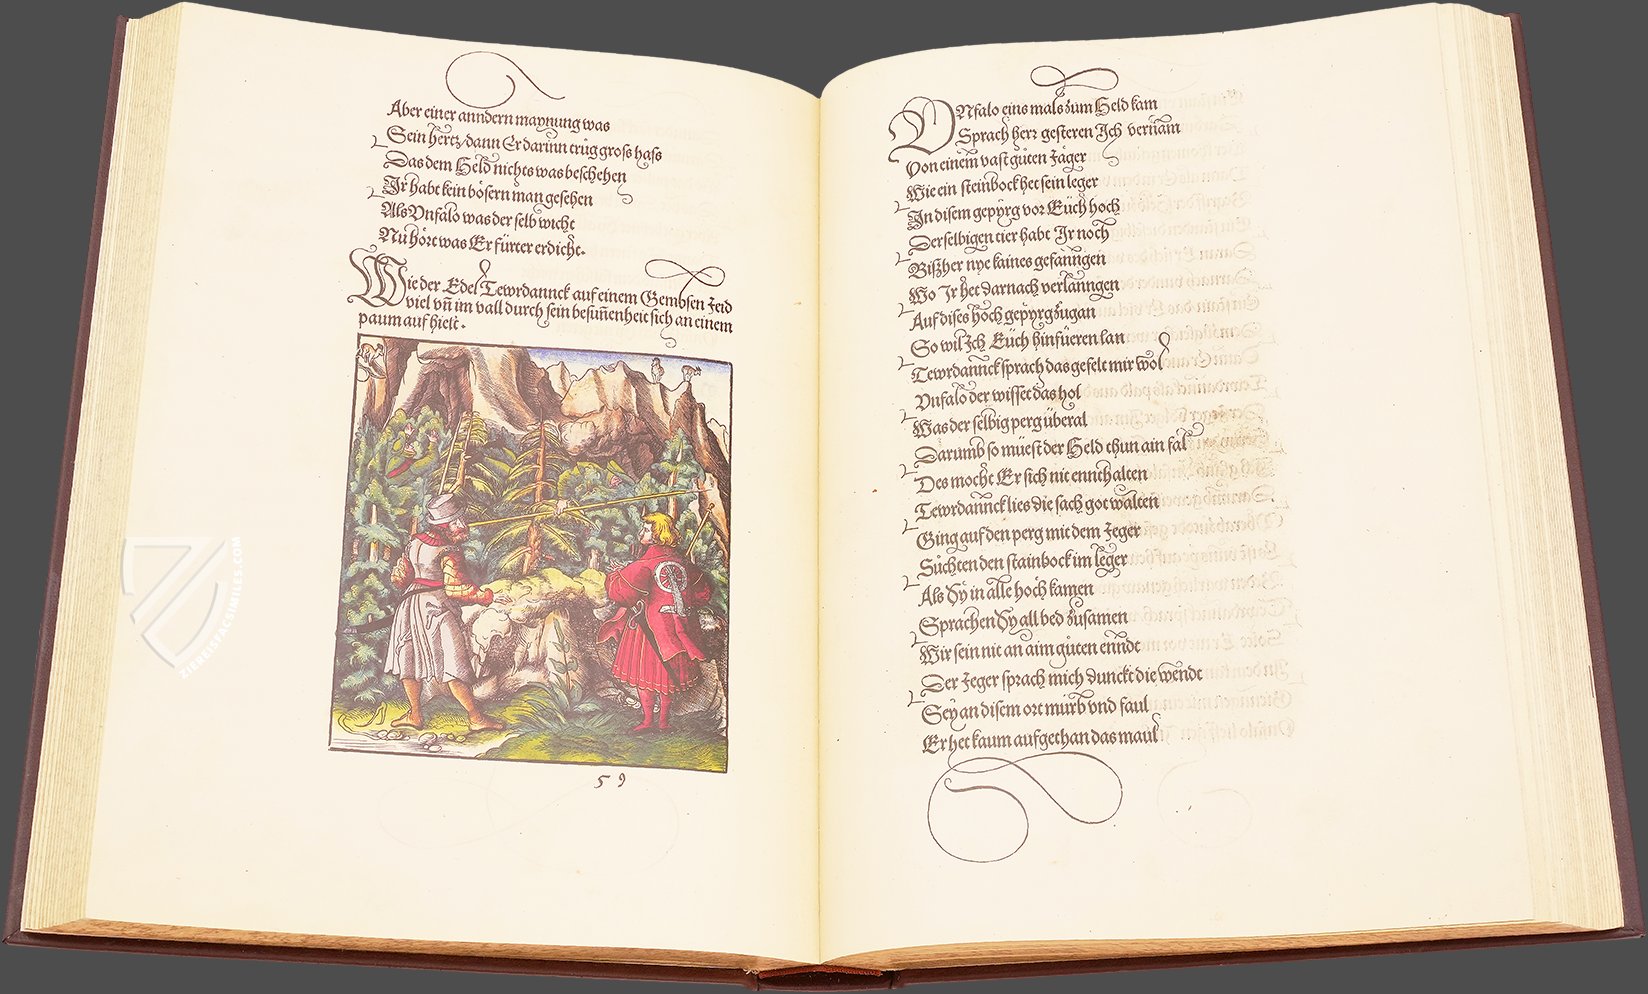 Aber einer anndern maynung was
Sein hertz/dann Er darinn trůg gross hass
Das dem Held nichts was beschehen
Ir habt kein bösern man gesehen
Als Vnfalo was der selb wicht
Nu hört was Er fürter erdicht.
Wie der Edel Tewrdannck auf einem Gembsen Jeid
viel vñ im vall durch sein besuñenheit sich an einem
paum auf hielt.
59
VNfalo eins mals zům Held kam
Sprach herr gesteren Ich vernam
Von einem vast gůten Jäger
Wie ein steinbock het sein leger
In disem gepyrg vor Eůch hoch
Derselbigen tier habt Ir noch
Bißher nye kaines gefanngen
Wo Ir het darnach verlanngen
Auf dises hoch gepyrg zugan
So wil Ich Eůch hinfüeren lan
Tewrdannck sprach das gefelt mir wol
Vnfalo der wisset das hol
Was der selbig perg überal
Darumb so müest der Held thun ain fal
Des mocht Er sich nit ennthalten
Tewrdannck lies die sach got walten
Ging auf den perg mit dem Jeger
Sůchten den stainbock im leger
Als Sy in alle hoch kamen
Sprachen Sy all bed zůsamen
Wir sein nit an aim gůten ennde
Der Jeger sprach mich dunckt die wendt
Sey an disem ort mürb vnd faul
Er het kaum aufgethan das maul
ZIEREISFACSIMILES.COM